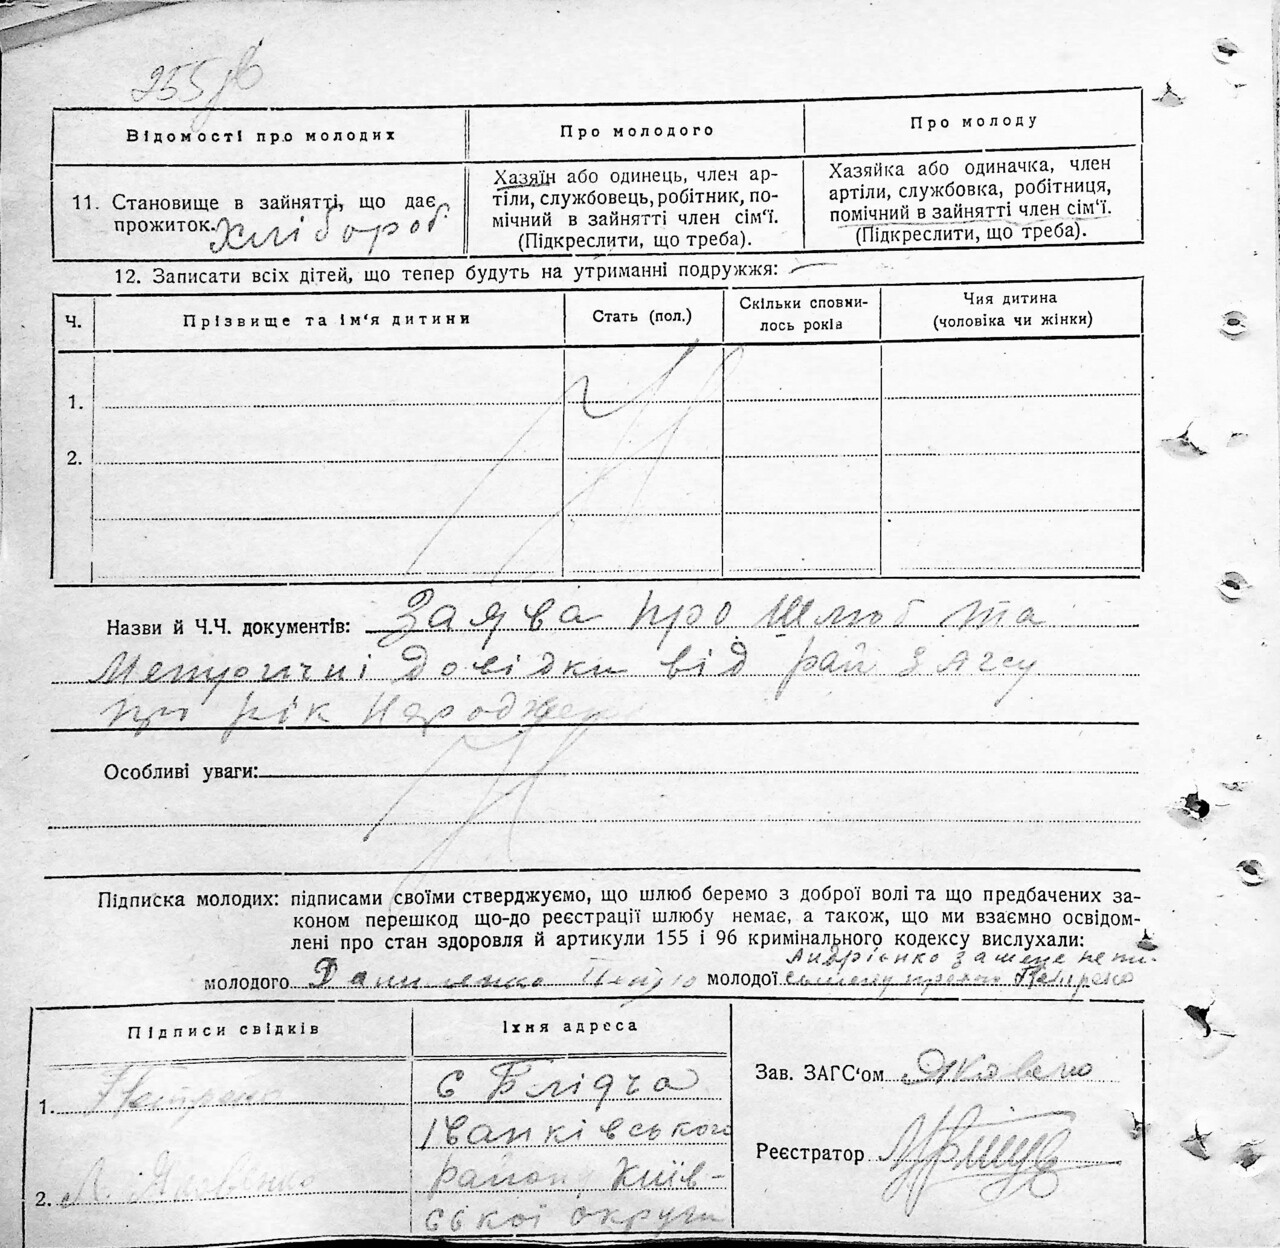 255
Відомості про молодих
Про молодого
Про молоду
11. Становище в зайнятті, що дає
прожиток. Хлібороб
Хазяїн або одинець, член ар-
тіли, службовець, робітник, по-
мічний в зайнятті член сім'ї.
(Підкреслити, що треба).
Хазяйка або одиначка, член
артіли, службовка, робітниця,
помічний в зайнятті член сім'ї.
(Підкреслити, що треба).
12. Записати всіх дітей, що тепер будуть на утриманні подружжя: —
Ч.
Прізвище та ім'я дитини
Стать (пол.)
Скільки сповни-
лось років
Чия дитина
(чоловіка чи жінки)
1.
2.
Назви й Ч.Ч. документів: Заява про шлюб та
Метричні довідки від рай загсу
про рік Народжен
Особливі уваги:
Підписка молодих: підписами своїми стверджуємо, що шлюб беремо з доброї волі та що предбачених за-
коном перешкод що-до реєстрації шлюбу немає, а також, що ми взаємно освідом-
лені про стан здоровля й артикули 155 і 96 кримінального кодексу вислухали:
Андрієнко за мене непи-
молодого Даниленко молодої
Підписи свідків
Їхня адреса
1. Петренко
2. Яковенко
с Блідча
Іванківського
району Київ-
ської округи
Зав. ЗАГС'ом Яковенко
Реєстратор